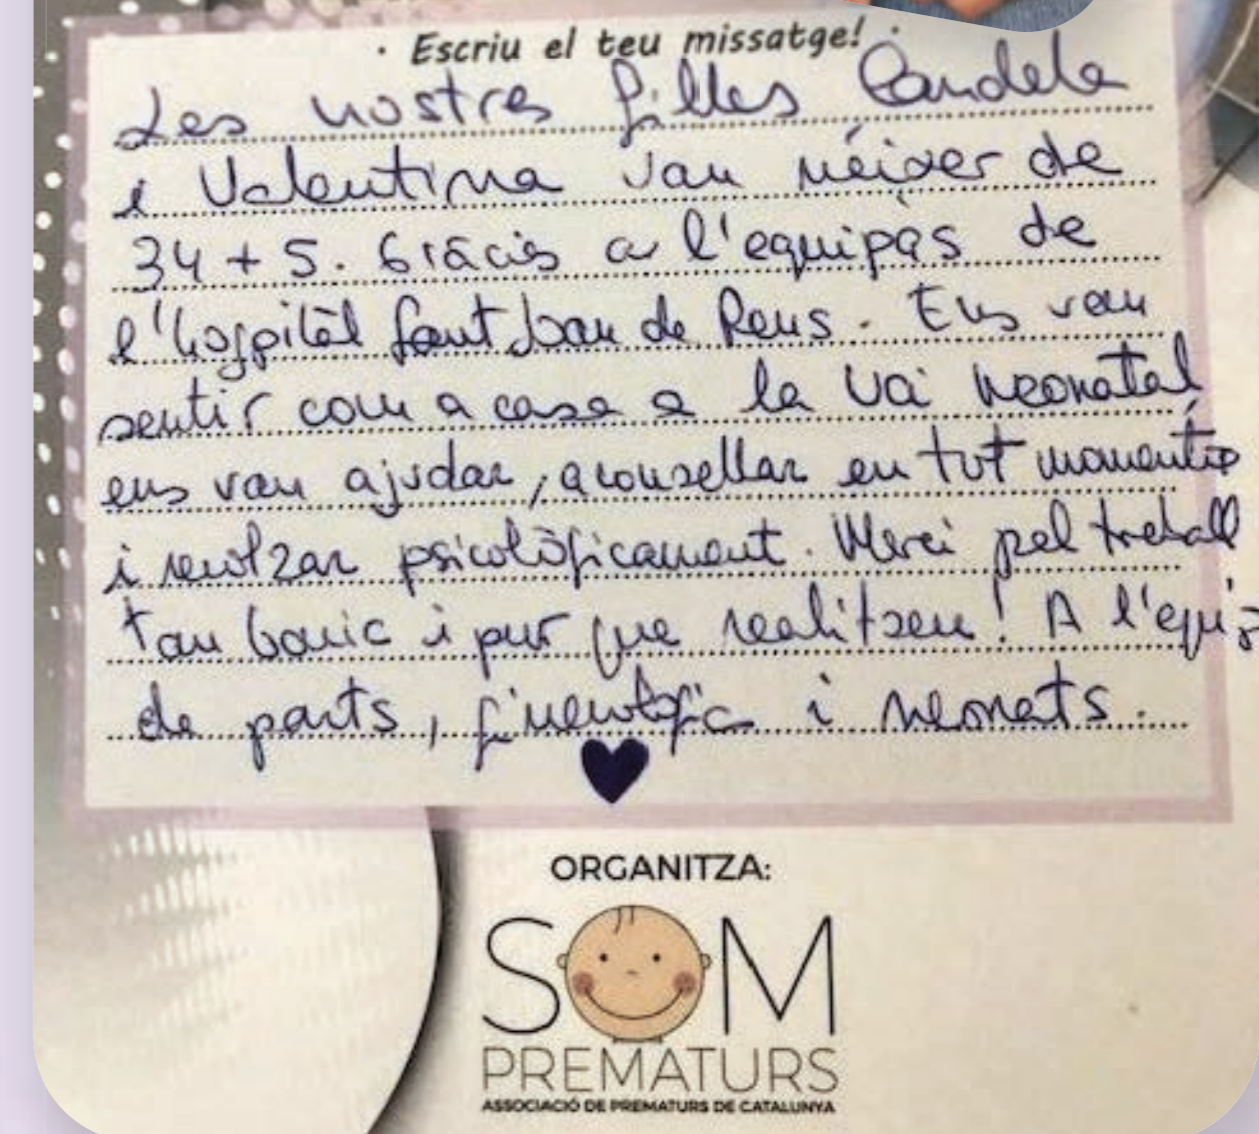 · Escriu el teu missatge! ·
Les nostres filles Candela
i Valentina van néixer de
34 + 5. Gràcies a l'equip de
l'hospital Sant Joan de Reus. Ens van
sentir com a casa a la Uci neonatal,
ens van ajudar, aconsellar en tot moment
i reforzar psicològicament. Merci pel treball
tan bonic i pur que realitzeu! A l'equip
de parts, ginecologia i neonats.
ORGANITZA:
SOM
PREMATURS
ASSOCIACIÓ DE PREMATURS DE CATALUNYA